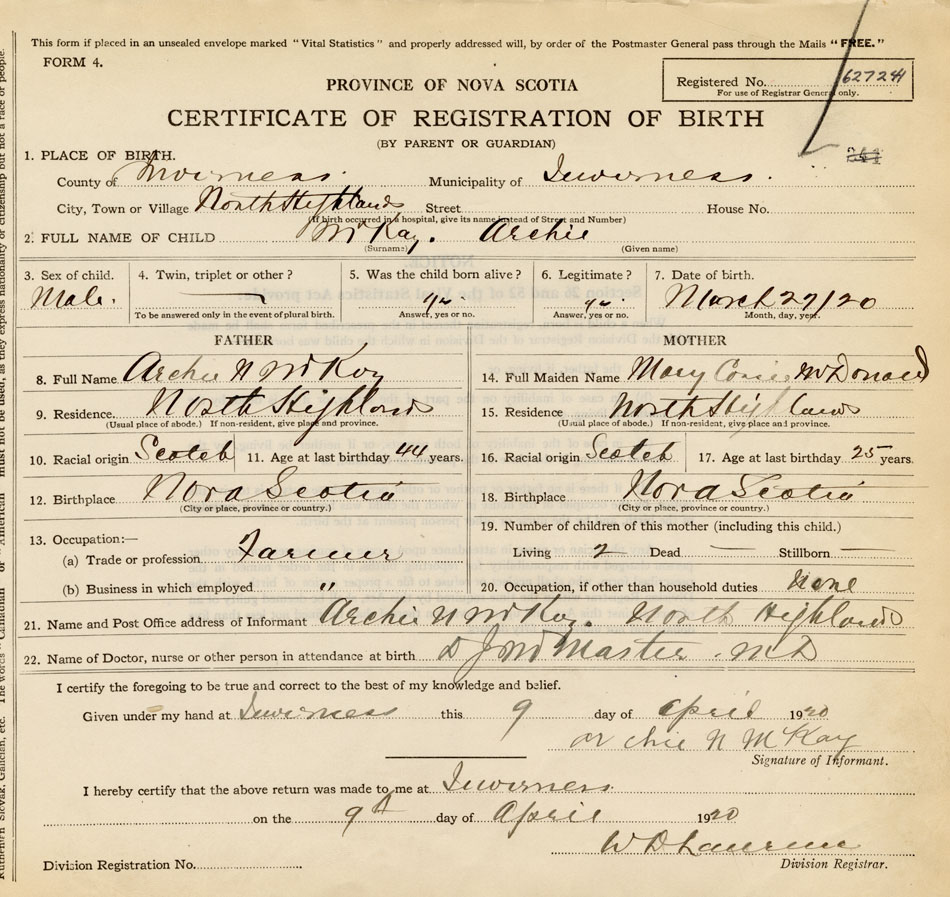 This form if placed in an unsealed envelope marked "Vital Statistics" and properly addressed will, by order of the Postmaster General pass through the Mails "FREE."
FORM 4.
Registered No. 627244
For use of Registrar General only.
PROVINCE OF NOVA SCOTIA
CERTIFICATE OF REGISTRATION OF BIRTH
(BY PARENT OR GUARDIAN)
1. PLACE OF BIRTH.
County of Inverness. Municipality of Inverness.
City, Town or Village North Highlands Street House No.
(If birth occurred in a hospital, give its name instead of Street and Number)
2. FULL NAME OF CHILD McKay. Archie
(Surname) (Given name)
3. Sex of child. 4. Twin, triplet or other? 5. Was the child born alive? 6. Legitimate? 7. Date of birth.
Male. yes. yes. March 27/20
To be answered only in the event of plural birth. Answer, yes or no. Answer, yes or no. Month, day, year.
FATHER MOTHER
8. Full Name Archie N McKay 14. Full Maiden Name Mary McDonald
9. Residence. North Highlands 15. Residence North Highlands
(Usual place of abode.) If non-resident, give place and province. (Usual place of abode.) If non-resident, give place and province.
10. Racial origin Scotch 11. Age at last birthday 44 years. 16. Racial origin Scotch 17. Age at last birthday 25 years.
12. Birthplace Nova Scotia 18. Birthplace Nova Scotia
(City or place, province or country.) (City or place, province or country.)
13. Occupation:— 19. Number of children of this mother (including this child.)
(a) Trade or profession Farmer Living 2 Dead — Stillborn —
(b) Business in which employed " 20. Occupation, if other than household duties None
21. Name and Post Office address of Informant Archie N McKay. North Highlands
22. Name of Doctor, nurse or other person in attendance at birth D J McMaster M D
I certify the foregoing to be true and correct to the best of my knowledge and belief.
Given under my hand at Inverness this 9 day of April 1920
Archie N McKay
Signature of Informant.
I hereby certify that the above return was made to me at Inverness
on the 9th day of April 1920
Division Registration No. Division Registrar.